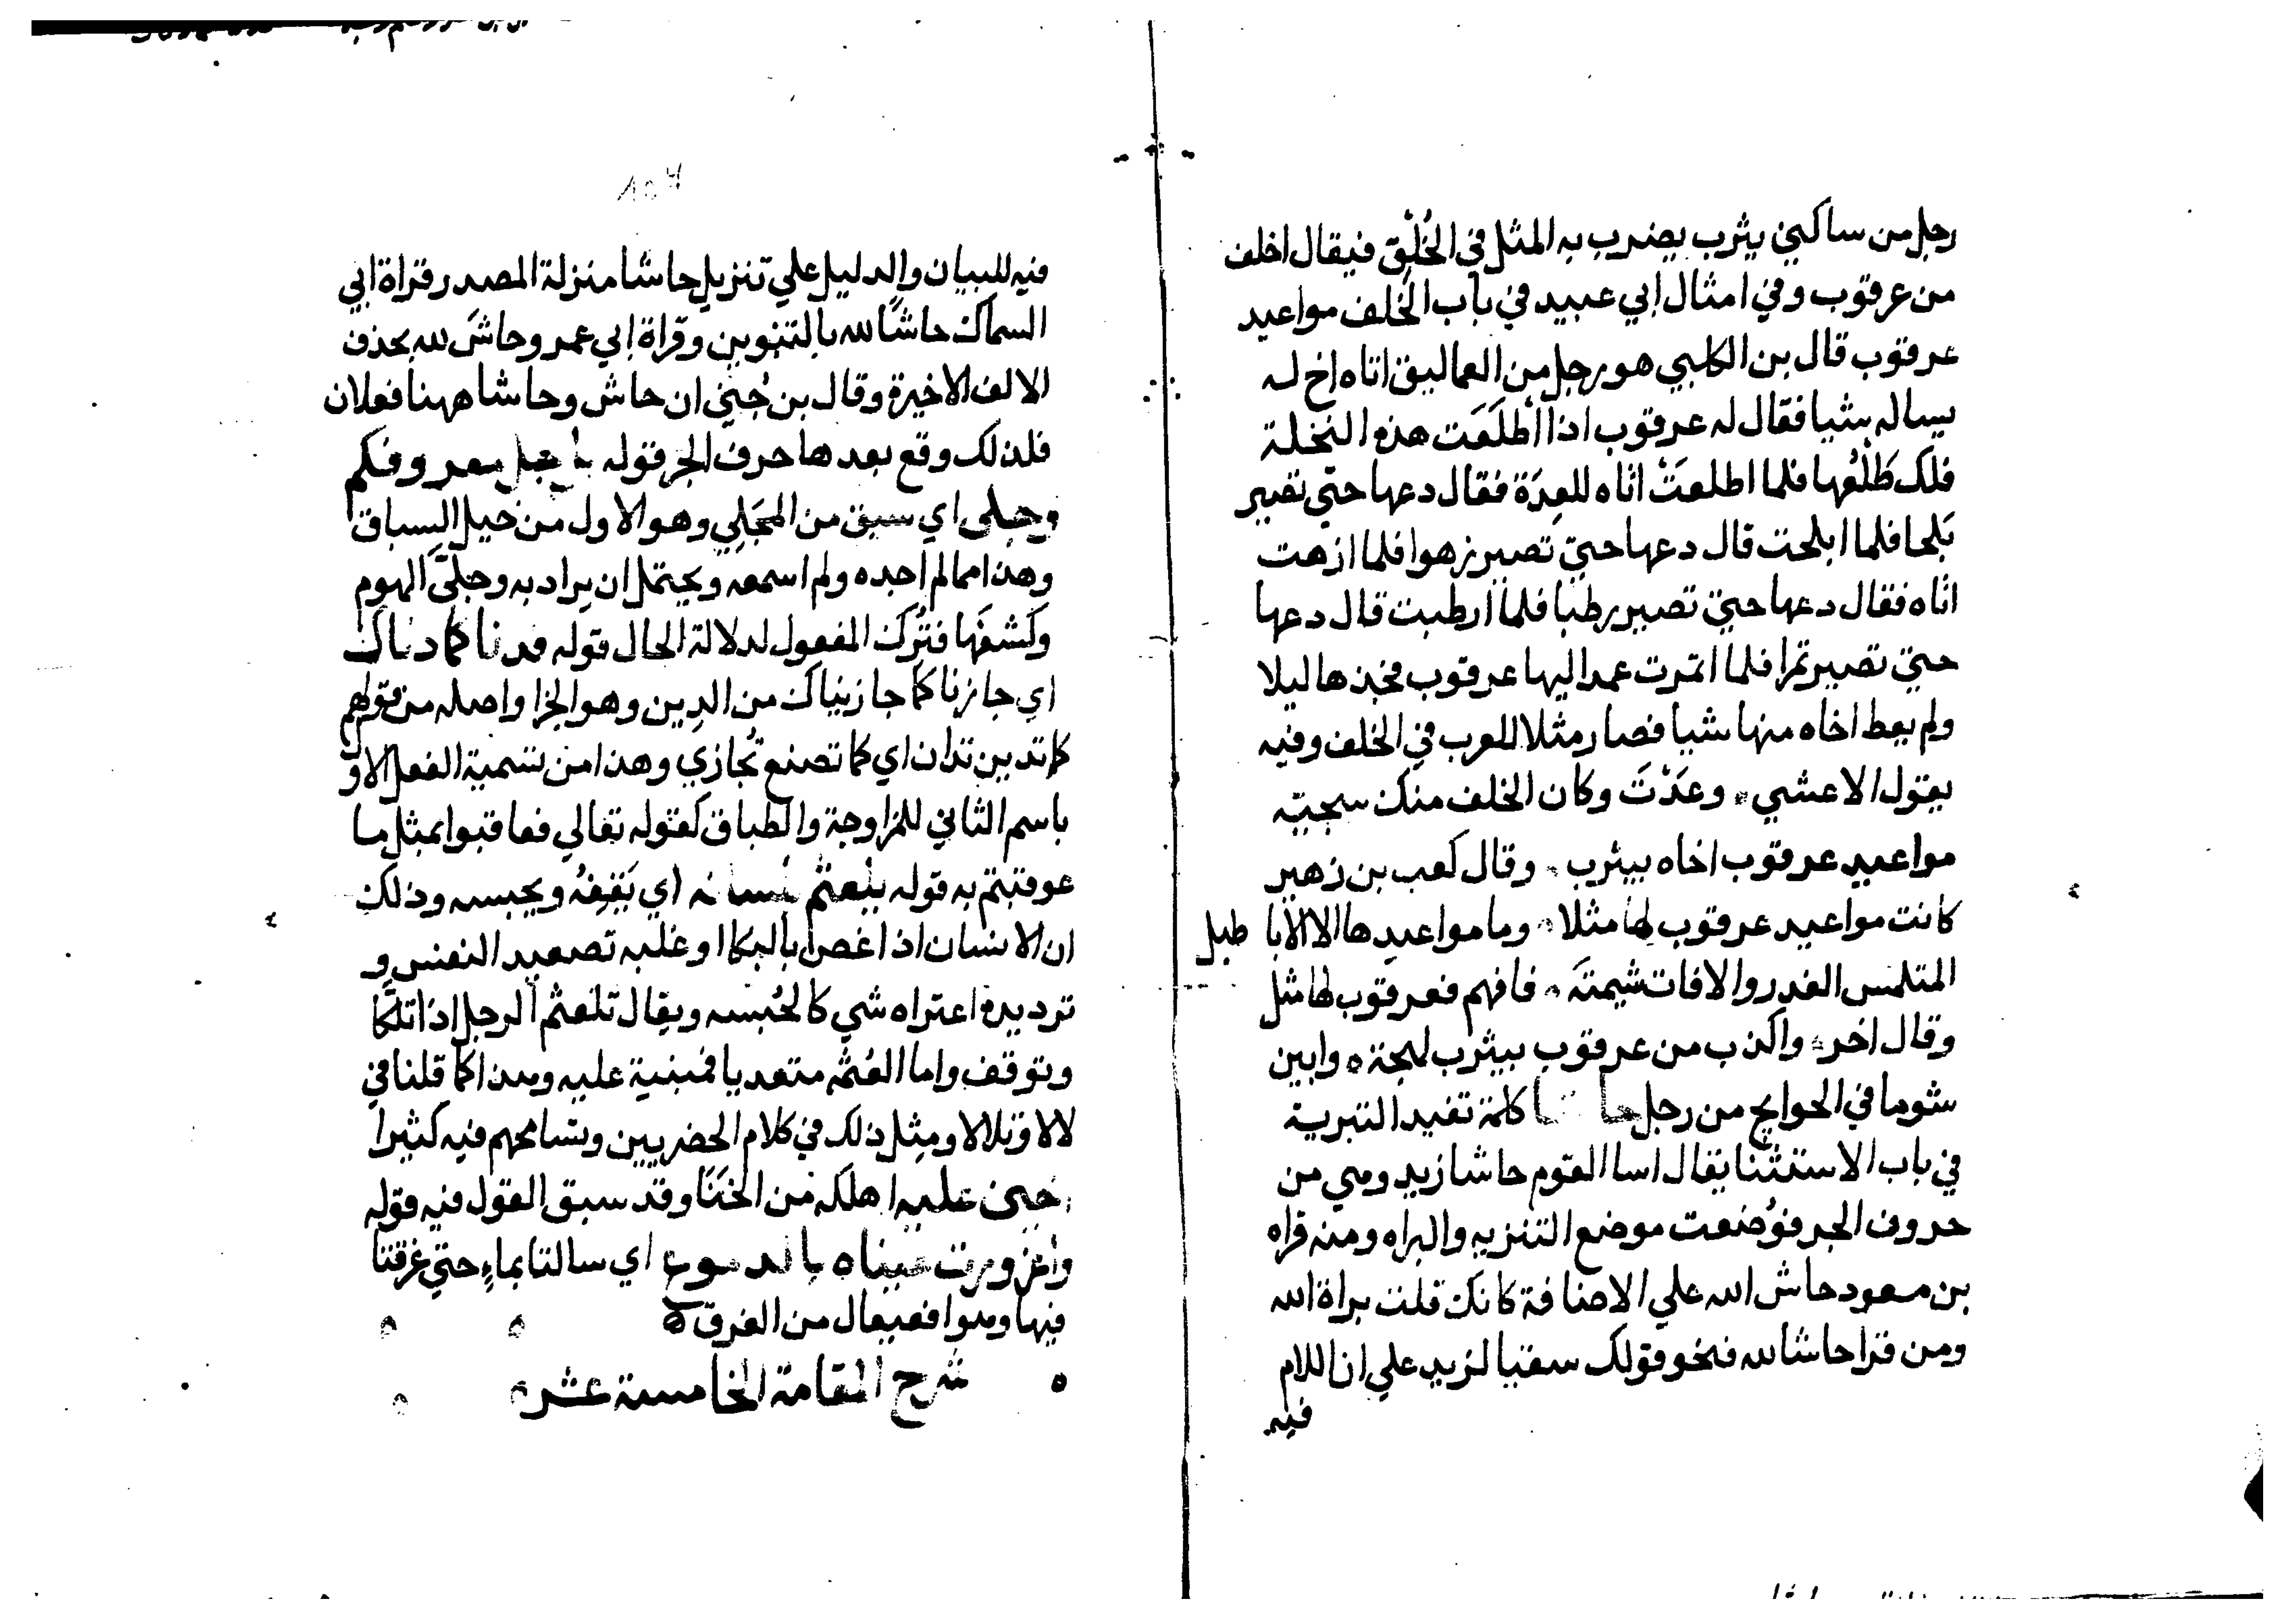 رجل من ساكني يثرب يضرب به المثل في الخُلْف فيقال اخلف
من عرقوب وفي امثال ابي عبيد في باب الخلف مواعيد
عرقوب قال بن الكلبي هو رجل من العماليق اتاه اخ له
يساله شيا فقال له عرقوب اذا اَطْلَعَت هذه النخلة
فلك طَلْعُها فلما اطلعَتْ اتاه للعِدَة فقال دعها حتي تصير
بَلحا فلما ابلحت قال دعها حتي تصير زهوا فلما ازهت
اتاه فقال دعها حتي تصير رطبا فلما ارطبت قال دعها
حتي تصير تمرا فلما اتمرت عمد اليها عرقوب فجذها ليلا
ولم يعط اخاه منها شيا فصار مثلا للعرب في الخلف وفيه
يقول الاعشي وعَدْتَ وكان الخلف منك سجية
مواعيد عرقوب اخاه بيثرب وقال كعب بن زهير
كانت مواعيد عرقوب لها مثلا وما مواعيدها الا الابا طيل
المتلمس الغدر والافات شيمتَه فافهم فعرقوب لها مثل
وقال اخر واكذب من عرقوب بيثرب لهجة وابين
شوما في الحوايج من رجل كلمة تفيد التبرية
في باب الاستثنا يقال اسا القوم حاشا زيد وهي من
حروف الجر فوُضعت موضع التنزيه والبراه ومنه قراه
بن مسعود حاش الله علي الاضافة كانك قلت براة الله
ومن قرا حاشا لله فنحو قولك سقيا لزيد علي ان اللام
فيه
فيه للبيان والدليل علي تنزيل حاشا منزلة المصدر قراة ابي
السماك حاشًا لله بالتنوين وقراة ابي عمرو حاشَ لله بحذف
الالف الاخيرة وقال بن جُني ان حاش وحاشا ههنا فعلان
فلذلك وقع بعدها حرف الجر قوله معروفكم
وجلى اي سبق من المجَلِي وهو الاول من خيل السباق
وهذا مما لم اجده ولم اسمعه ويحتمل ان يراد به وجلَّى الهموم
وكشفَها فتُرك المفعول لدلالة الحال قوله فدنا كما دناك
اي جازنا كما جازيناك من الدِين وهو الجزا واصله من قولهم
كما تدين تدان اي كما تصنع تُجازي وهذا من تسمية الفعل الاوّ
باسم الثاني للمزاوجة والطباق كقوله تعالي فعاقبوا بمثل ما
عوقبتم به قوله يلعثم لسانه اي يَقِفِهُ ويحبسه وذلك
ان الانسان اذا غص بالبكا او غلبه تصعيد النفس و
ترديده اعتراه شي كالحُبسه ويقال تلعثم الرجل اذا تلكّا
وتوقف واما لعثمه متعديا فمبنية عليه وهذا كما قلنا في
لالا وتلالا ومثل ذلك في كلام الحضريين وتسامحهم فيه كثير
اخنى عليه اهلكه من الخَنَا وقد سبق القول فيه قوله
واغرورقت عيناه بالدموع اي سالتا بماءٍ حتي غرقتا
فيها وهو افعيعال من الغرق
شرح المقامة الخامسة عشر